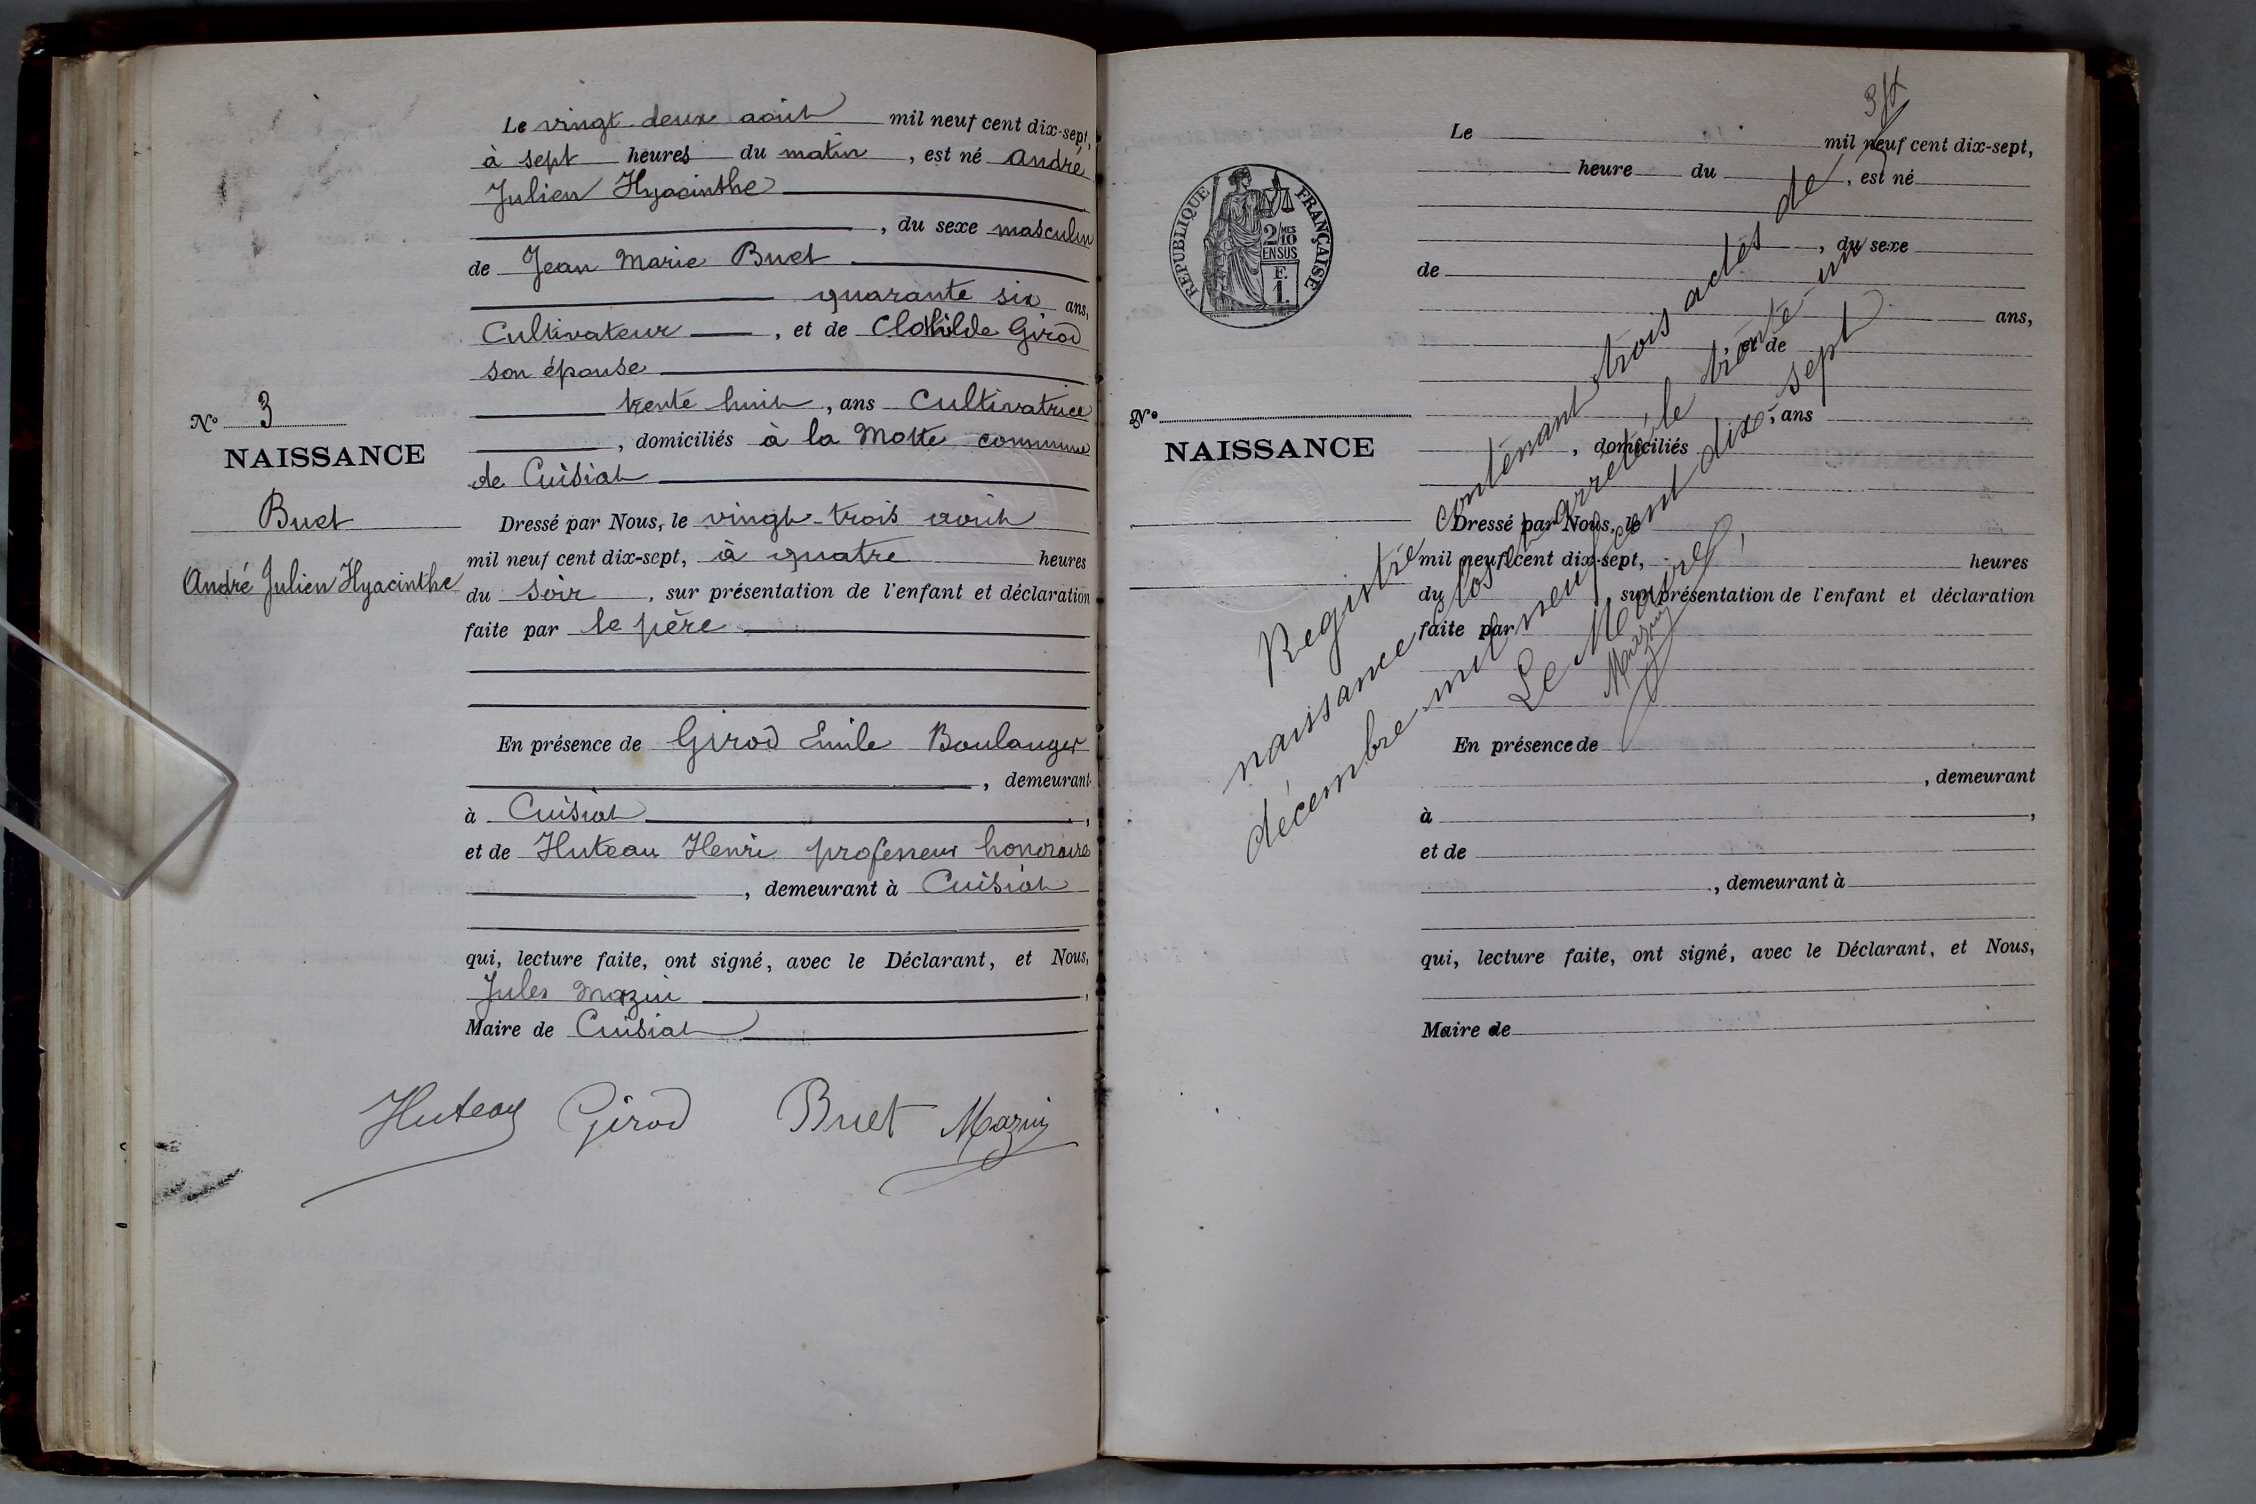 Le vingt deux août mil neuf cent dix-sept,
à sept heures du matin, est né André
Julien Hyacinthe
, du sexe masculin
de Jean Marie Buet
quarante six ans,
Cultivateur, et de Clothilde Girod
son épouse
trente huit, ans Cultivatrice
, domiciliés à la Motte commune
de Cuisiat
N° 3
NAISSANCE
Buet
André Julien Hyacinthe
Dressé par Nous, le vingt-trois août
mil neuf cent dix-sept, à quatre heures
du soir, sur présentation de l'enfant et déclaration
faite par le père
En présence de Girod Emile Boulanger
, demeurant
à Cuisiat,
et de Huteau Henri professeur honoraire
, demeurant à Cuisiat
qui, lecture faite, ont signé, avec le Déclarant, et Nous,
Jules Mazuir
Maire de Cuisiat
Huteau Girod Buet Mazuir
RÉPUBLIQUE FRANÇAISE
2/10 MES
EN SUS
F.
1.
Le mil neuf cent dix-sept,
heure du, est né
, du sexe
de
ans,
, et de
, ans
, domiciliés
N°
NAISSANCE
Dressé par Nous, le
mil neuf cent dix-sept, heures
du, sur présentation de l'enfant et déclaration
faite par
En présence de
, demeurant
à,
et de
, demeurant à
qui, lecture faite, ont signé, avec le Déclarant, et Nous,
Maire de
Registre contenant trois actes de
naissance clos et arrêté le trente-un
décembre mil neuf cent dix-sept
Le Maire,
Mazuir